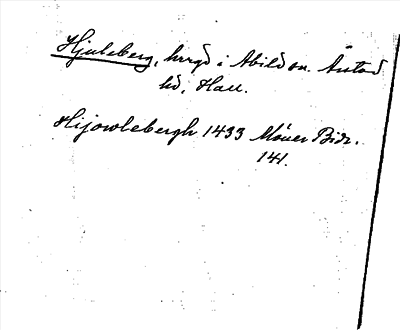 Hjuleberg, hrrgd i Abild sn. Årstad
hd, Hall.
Hijowlebergh 1433 Möller Bidr.
141.